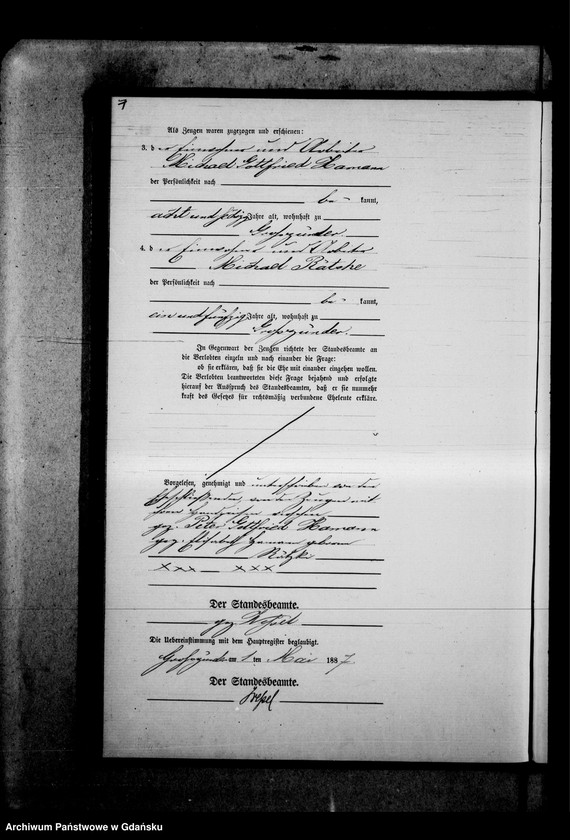 7
Als Zeugen waren zugezogen und erschienen:
3. der Einwohner und Arbeiter
Michael Gottfried Hamann
der Persönlichkeit nach
be- kannt,
acht und Jahre alt, wohnhaft zu
Großzünder
4. der Einwohner und Arbeiter
Michael Rätzke
der Persönlichkeit nach
be- kannt,
ein und fünfzig Jahre alt, wohnhaft zu
Großzünder.
In Gegenwart der Zeugen richtete der Standesbeamte an
die Verlobten einzeln und nach einander die Frage:
ob sie erklären, daß sie die Ehe mit einander eingehen wollen.
Die Verlobten beantworteten diese Frage bejahend und erfolgte
hierauf der Ausspruch des Standesbeamten, daß er sie nunmehr
kraft des Gesetzes für rechtsmäßig verbundene Eheleute erkläre.
Vorgelesen, genehmigt und unterschrieben von den
Eheschließenden, von den Zeugen mit
ihren Handzeichen versehen
gez. Peter Gottfried Hamann
gez. Elisabeth Hamann geborene
XXX XXX
Der Standesbeamte.
gez.
Die Uebereinstimmung mit dem Hauptregister beglaubigt.
Großzünder am 1 ten Mai 1887
Der Standesbeamte.
Archiwum Państwowe w Gdańsku